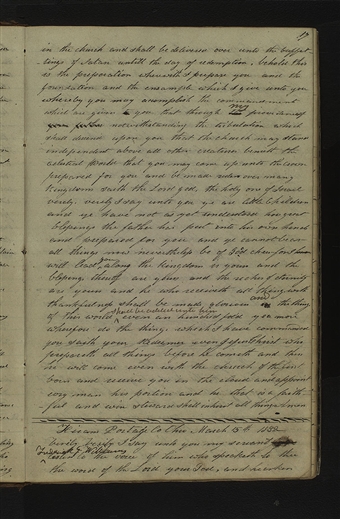 19
in the church and shall be delivered over unto the buffet
ings of Satan untill the day of redemption. behold this
is the preparation wherewith I prepare you and the
foundation and the ensample which I give unto you
whereby you may accomplish the commandment
which are given you that through my providence
notwithstanding the tribulation which
shall desend upon you that the church may stand
independent above all other creatures beneath the
celestial World that you may come up unto the crown
prepared for you and be made rulers over many
Kingdoms saith the Lord God, the holy one of Israel
verily verily I say unto you ye are little children
and ye have not as yet understood how great
blessings the father has got unto his own hands
and prepared for you and ye cannot bear
all things now neverthless be of good cheer for I
will lead you along the Kingdom is yours and the
blessings thereof are yours and the riches of eternity
are yours and he who receiveth all things with
thankfulness shall be made glorious and the things
of this world shall be added unto him even an hundred fold yea more
wherefore do the things which I have commanded
you saith your Redeemer even the son Ahman who
prepareth all things before he
he will come even with the church of the first
born and receive you in the cloud and appoint
every man his portion and he that is a faith
ful and wise Steward shall inherit all things amen
Hiram Portage Co Ohio March 15th 1832
Verily verily I say unto you my servant
Frederick G. Williams
listen to the voice of him who speaketh to thee
the word of the Lord your God, and hearken